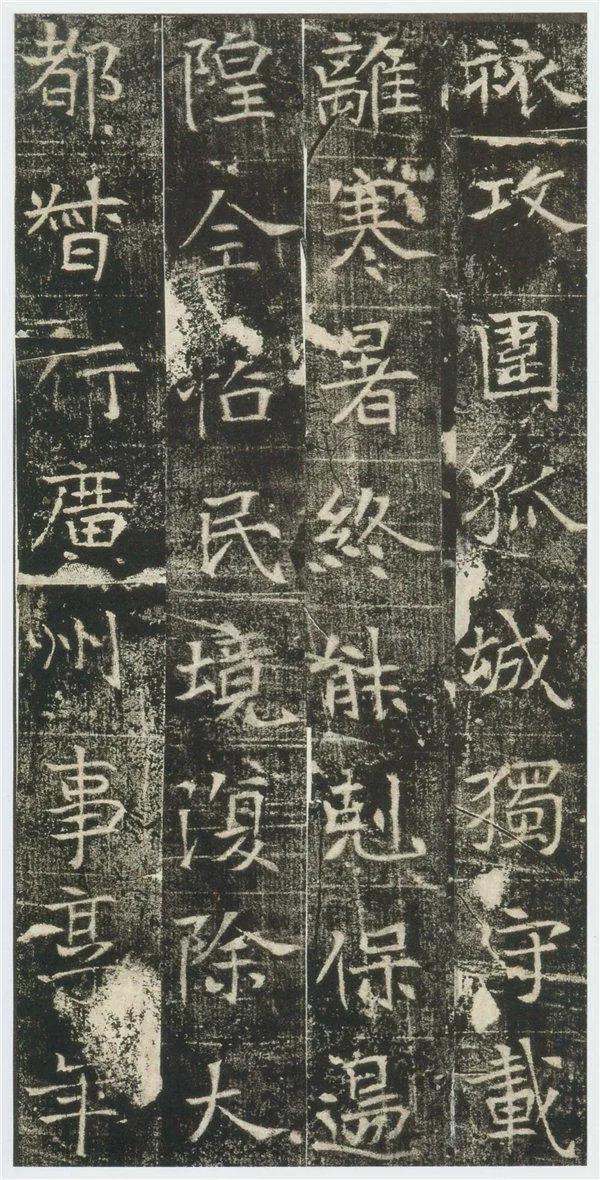 攻圍孤城獨守載
離寒暑終能剋保邊
隍全怡民境復除大
都督行廣州事享年